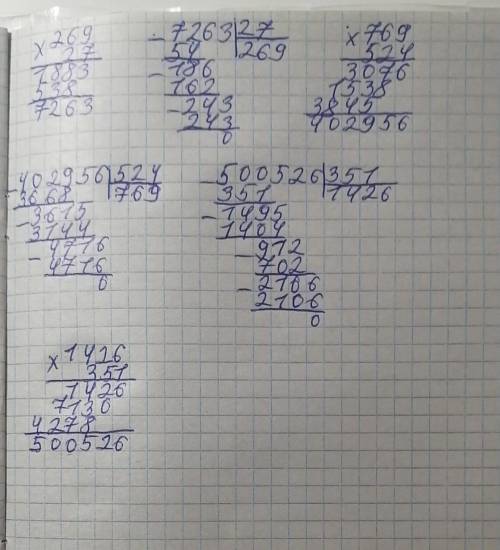 × 269
27
1883
538
7263
- 7263 | 27
54 | 269
- 186
162
- 243
243
0
× 769
524
3076
1538
3845
402956
- 402956 | 524
3668 | 769
- 3615
3144
- 4716
4716
0
- 500526 | 351
351 | 1426
- 1495
1404
- 912
702
- 2106
2106
0
× 1426
351
1426
7130
4278
500526